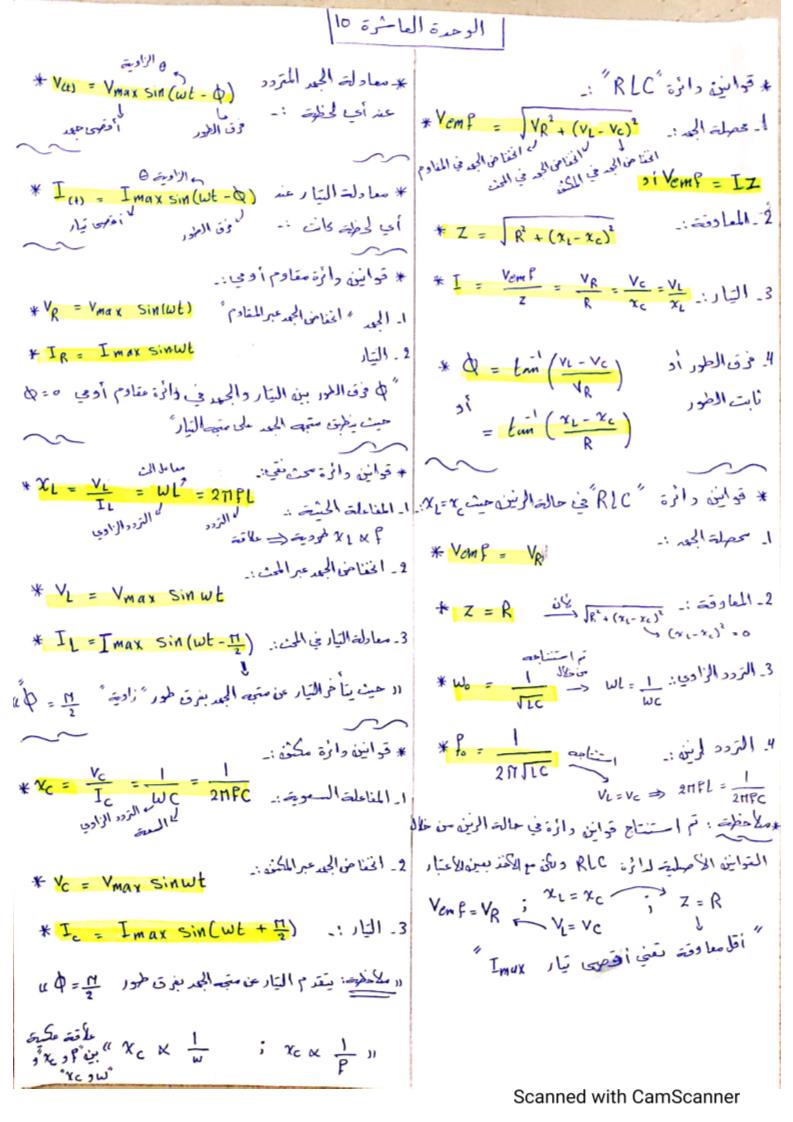 الوحدة العاشرة 10
* قوانين دائرة "RLC" :-
1- محصلة الجهد :- * Vemf = √(VR² + (VL - VC)²)
انخفاض الجهد في المقاوم
انخفاض الجهد في المحث
انخفاض الجهد في المكثف
أو Vemf = IZ
2- المعاوقة :- * Z = √(R² + (xL - xC)²)
3- التيار :- * I = Vemf/Z = VR/R = VC/xC = VL/xL
4- فرق الطور أو ثابت الطور * Φ = tan⁻¹((VL - VC)/VR)
أو = tan⁻¹((xL - xC)/R)
* قوانين دائرة "RLC" في حالة الرنين حيث xL = xC :-
1- محصلة الجهد :- * Vemf = VR
2- المعاوقة :- * Z = R لأن √(R² + (xL - xC)²)
(xL - xC)² = 0
3- التردد الزاوي :- * ω₀ = 1/√LC تم استنتاجه من خلال → ωL = 1/ωC
4- التردد لرنين :- * f₀ = 1/2π√LC استنتاجه
VL = VC ⇒ 2πfL = 1/2πfC
* ملاحظة : تم استنتاج قوانين دائرة في حالة الرنين من خلال
القوانين الأصلية لدائرة RLC ولكن مع الأخذ بعين الاعتبار
Vemf = VR ; xL = xC ; Z = R
VL = VC
" أقل معاوقة تعني أقصى تيار Imax "
* معادلة الجهد المتردد عند أي لحظة :- * V(t) = Vmax sin(ωt - Φ)
الزاوية θ
فرق الطور
أقصى جهد
* معادلة التيار عند أي لحظة كانت :- * I(t) = Imax sin(ωt - Φ)
الزاوية θ
فرق الطور
أقصى تيار
* قوانين دائرة مقاوم أومي :-
1- الجهد " انخفاض الجهد عبر المقاوم " * VR = Vmax sin(ωt)
2- التيار * IR = Imax sinωt
"Φ فرق الطور بين التيار والجهد في دائرة مقاوم أومي Φ = 0
حيث ينطبق متجه الجهد على متجه التيار"
* قوانين دائرة محث نقي :-
1- المفاعلة الحثية :- * xL = VL/IL = ωL = 2πfL
معامل الحث
التردد
التردد الزاوي
xL ∝ f طردية ⇐ علاقة
2- انخفاض الجهد عبر المحث :-
* VL = Vmax sin ωt
3- معادلة التيار في المحث :- * IL = Imax sin(ωt - π/2)
" حيث يتأخر التيار عن متجه الجهد بفرق طور "زاوية" Φ = π/2 "
* قوانين دائرة مكثف :-
1- المفاعلة السعوية :- * xC = VC/IC = 1/ωC = 1/2πfC
التردد الزاوي
السعة
2- انخفاض الجهد عبر المكثف :-
* VC = Vmax sinωt
3- التيار :- * IC = Imax sin(ωt + π/2)
" ملاحظة : يتقدم التيار عن متجه الجهد بفرق طور Φ = π/2 "
" xC ∝ 1/f ; xC ∝ 1/ω "
علاقة عكسية
بين "f و xC" و
"ω و xC"
Scanned with CamScanner